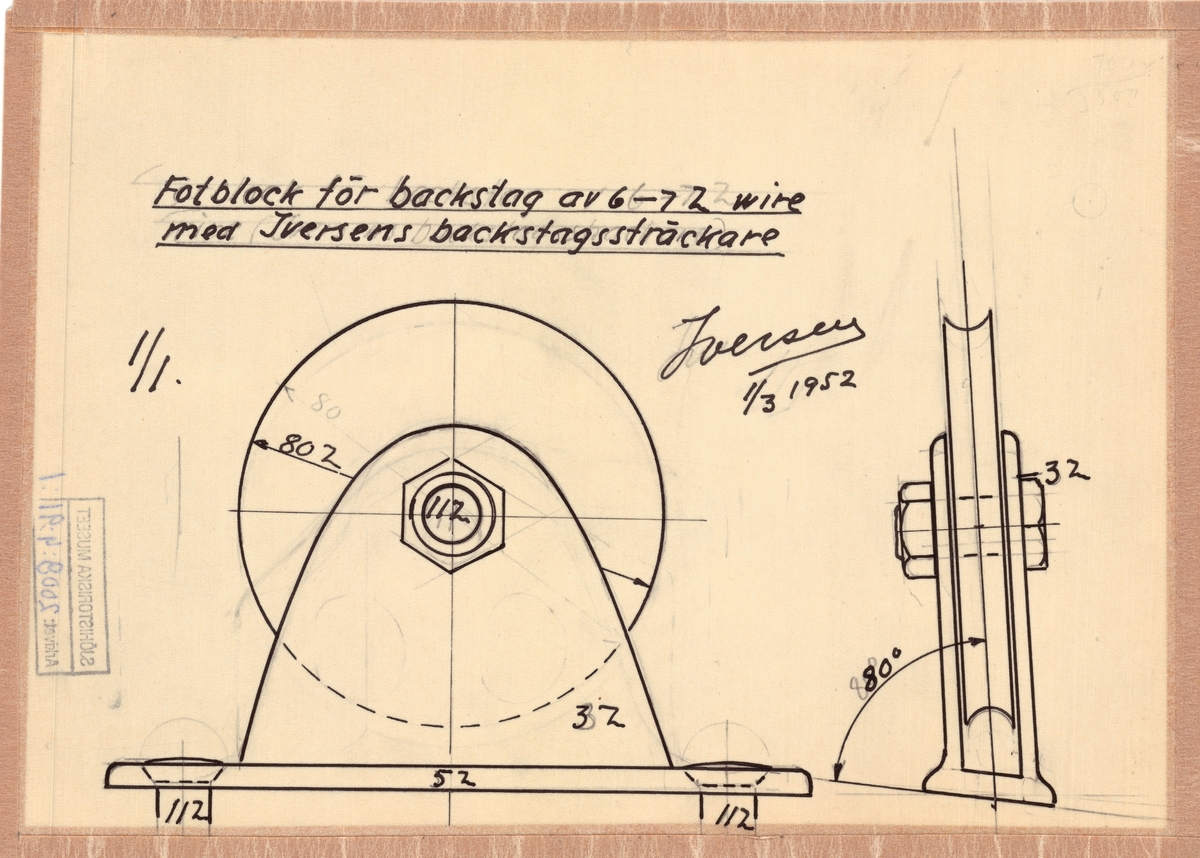 Fotblock för backstag av 6-7 Z wire
med Iversens backstagssträckare
1/1.
Iversen
1/3 1952
80
80 Z
11 Z
3 Z
3 Z
80°
5 Z
11 Z
11 Z
SJÖHISTORISKA MUSEET
Arkivet: 2008:4:911:1